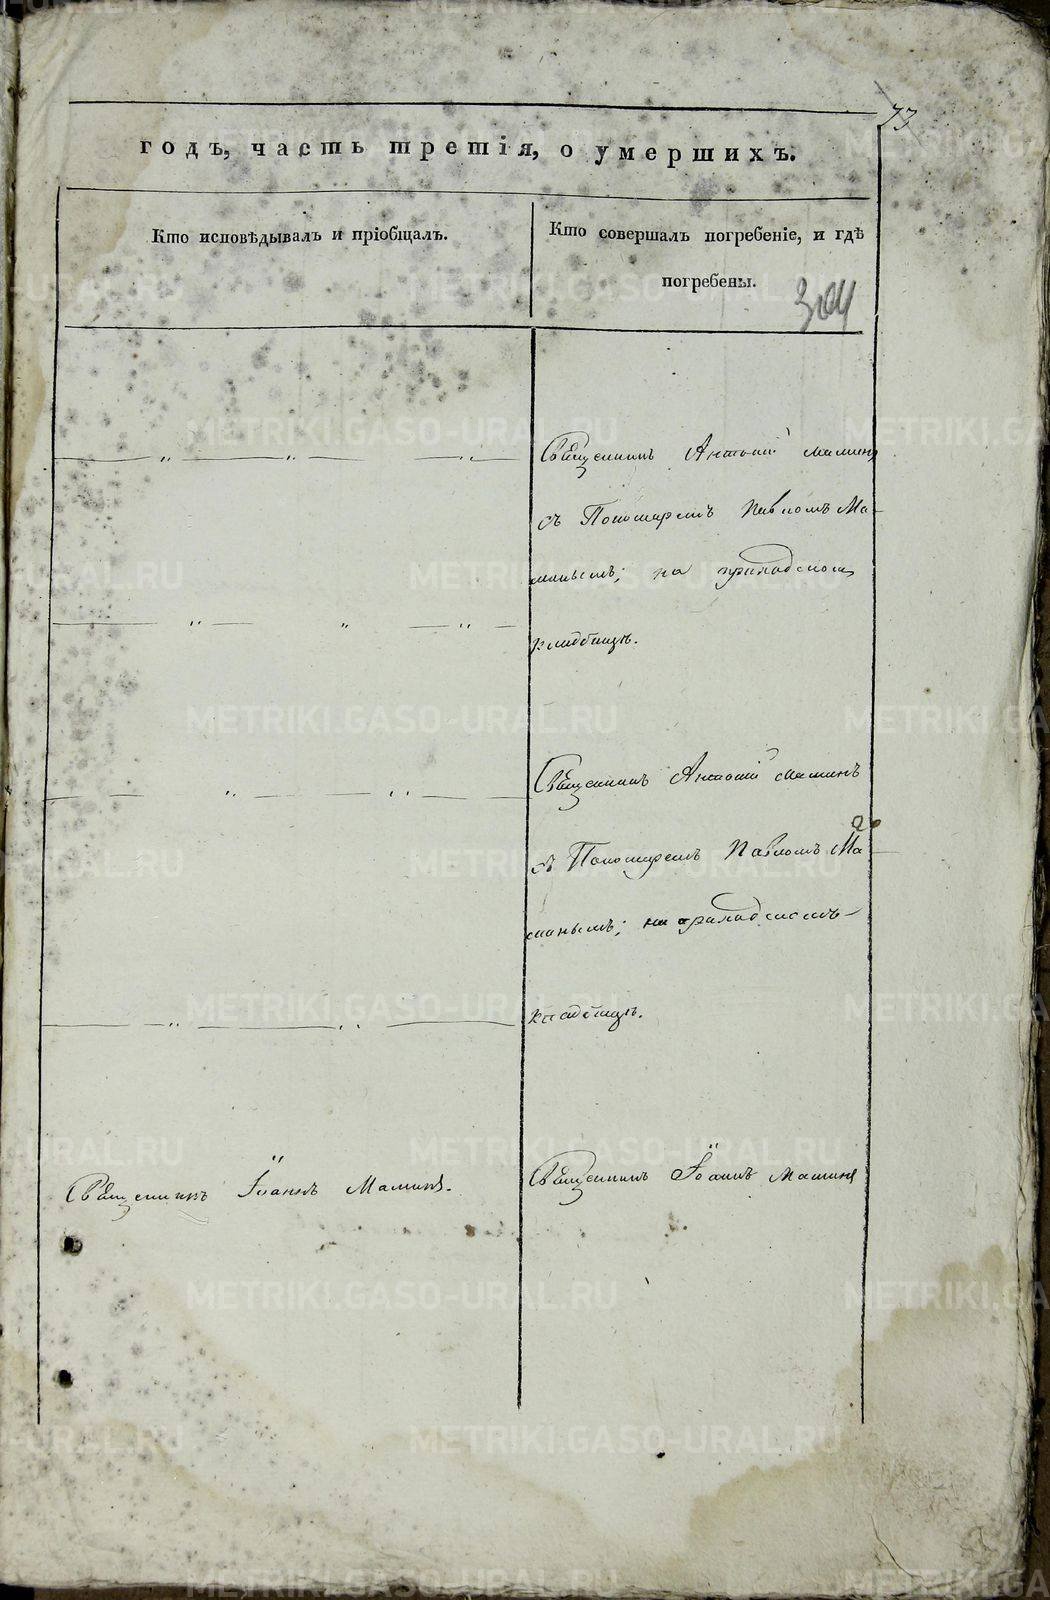 73
годъ, часть третія, о умершихъ.
Кто исповѣдывалъ и пріобщалъ.
Кто совершалъ погребеніе, и гдѣ
погребены.
304
Священникъ Антоній Маминъ
съ Пономаремъ Павломъ Ма-
минымъ; на приходском
кладбищѣ.
Священникъ Антоній Маминъ
съ Пономаремъ Павломъ Ма-
минымъ; на приходскомъ
кладбищѣ.
Священникъ Іоаннъ Маминъ.
Священникъ Іоаннъ Маминъ
METRIKI.GASO-URAL.RU